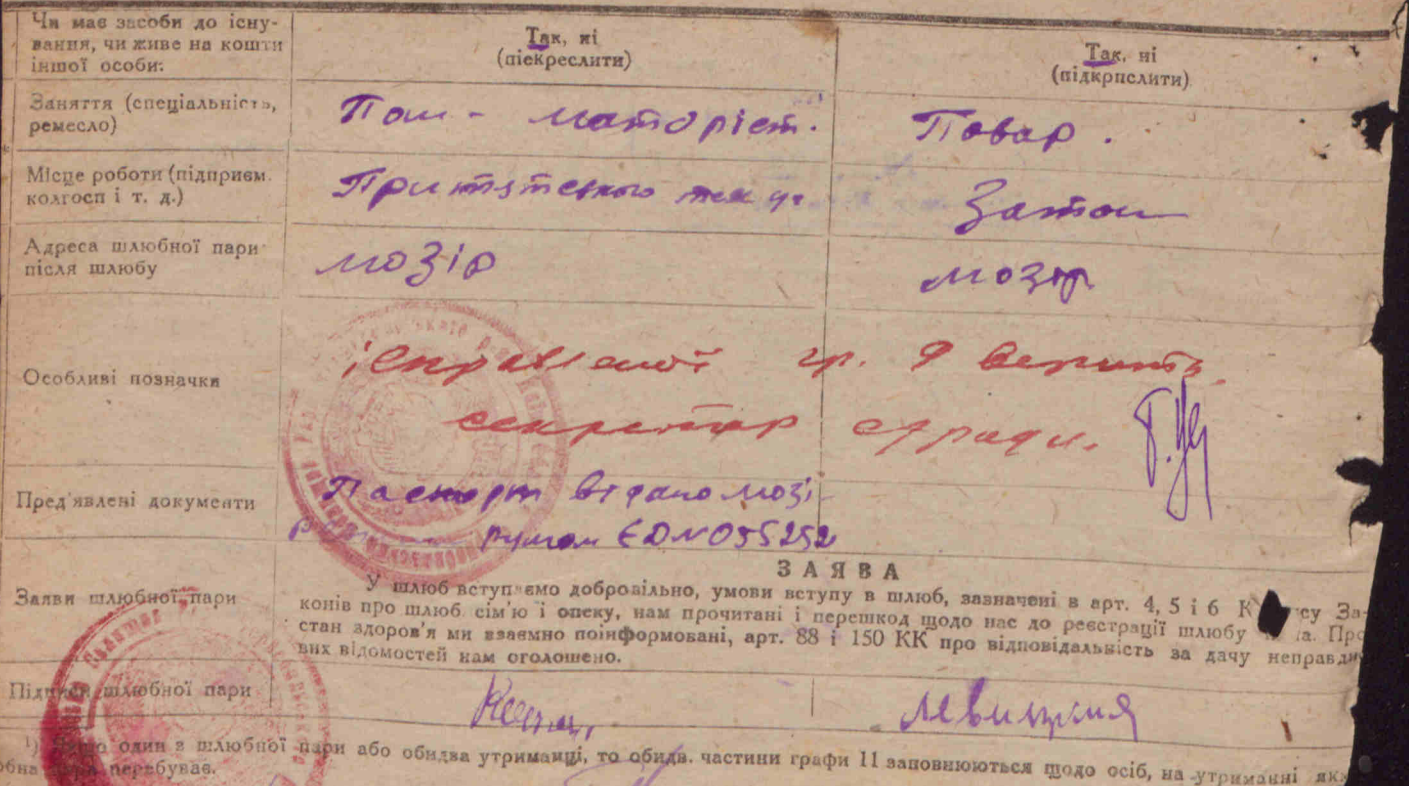 Чи має засоби до існу-
вання, чи живе на кошти
іншої особи:
Так, ні
(піекреслити)
Так, ні
(підкрпслити)
Заняття (спеціальність,
ремесло)
Пом - моторіст.
Повар.
Місце роботи (підприєм.
колгосп і т. д.)
Затон
Адреса шлюбної пари
після шлюбу
мозір
мозір
Особливі позначки
гр. 9 верить
секретар с/ради.
Пред'явлені документи
Паспорт видано мозі-
ЄД №055252
ЗАЯВА
Заяви шлюбної пари
У шлюб вступаємо добровільно, умови вступу в шлюб, зазначені в арт. 4, 5 і 6 За-
конів про шлюб сім'ю і опеку, нам прочитані і перешкод щодо нас до реєстрації шлюбу Про
стан здоров'я ми взаємно поінформовані, арт. 88 і 150 КК про відповідальність за дачу неправди
вих відомостей нам оголошено.
Підписи шлюбної пари
Левицкия
¹) Якщо один з шлюбної пари або обидва утриманці, то обидв. частини графи 11 заповнюються щодо осіб, на утриманні як
перебуває.